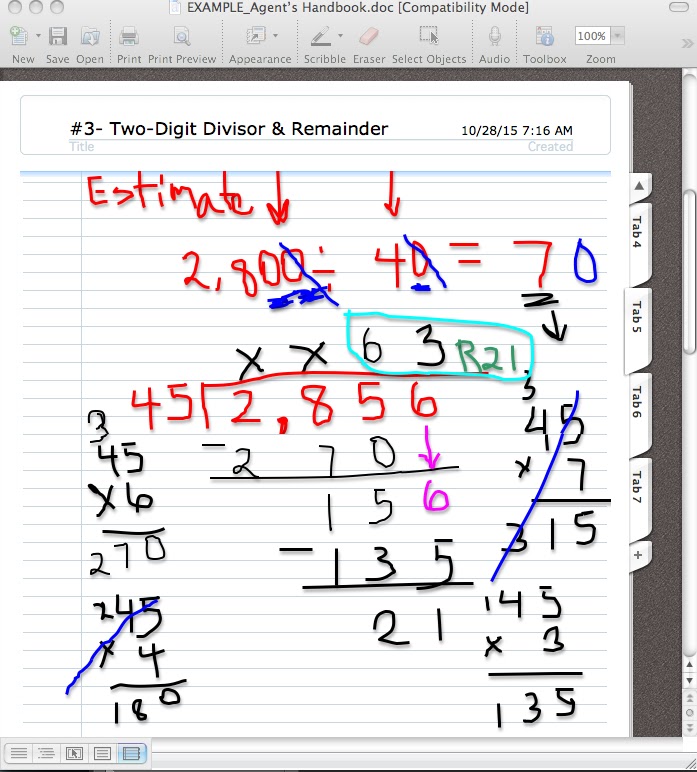 EXAMPLE_Agent's Handbook.doc [Compatibility Mode]
100%
New Save Open Print Print Preview Appearance Scribble Eraser Select Objects Audio Toolbox Zoom
#3- Two-Digit Divisor & Remainder 10/28/15 7:16 AM
Title Created
Estimate
2,800 ÷ 40 = 70
x x 6 3 R21
45 2,856
3
45
x6
270
- 2 7 0
1 5 6
- 1 3 5
2 1
3
45
x 7
315
2
45
x 4
180
1
45
x 3
135
Tab 4
Tab 5
Tab 6
Tab 7
+